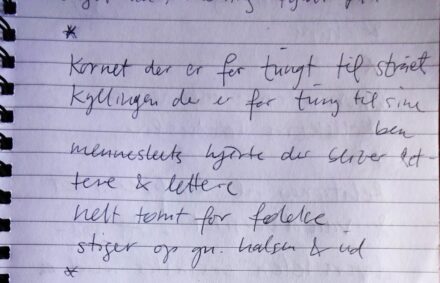 *
Kornet der er for tungt til strået
Kyllingen der er for tung til sine
ben
menneskets hjerte der bliver let-
tere & lettere
helt tomt for følelse
stiger op gn. halsen & ud
*